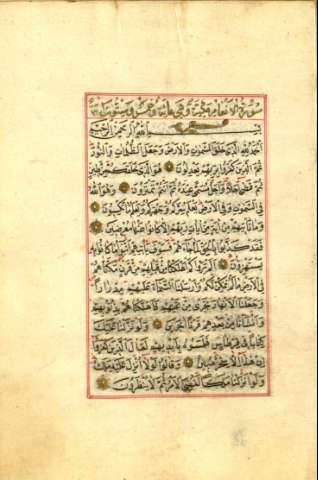 سورة الانعام مكية وهي مائة وخمس وستون اية
بسم الله الرحمن الرحيم
الحمد لله الذي خلق السموات والارض وجعل الظلمات والنور
ثم الذين كفروا بربهم يعدلون هو الذي خلقكم من طين
ثم قضى اجلا واجل مسمى عنده ثم انتم تمترون وهو الله
في السموات وفي الارض يعلم سركم وجهركم ويعلم ما تكسبون
وما تأتيهم من اية من ايات ربهم الا كانوا عنها معرضين
فقد كذبوا بالحق لما جاءهم فسوف يأتيهم انباء ما كانوا به
يستهزؤن الم يروا كم اهلكنا من قبلهم من قرن مكناهم
في الارض ما لم نمكن لكم وارسلنا السماء عليهم مدرارا
وجعلنا الانهار تجري من تحتهم فاهلكناهم بذنوبهم
وانشأنا من بعدهم قرنا اخرين ولو نزلنا عليك
كتابا في قرطاس فلمسوه بايديهم لقال الذين كفروا
ان هذا الا سحر مبين وقالوا لولا انزل عليه ملك
ولو انزلنا ملكا لقضي الامر ثم لا ينظرون